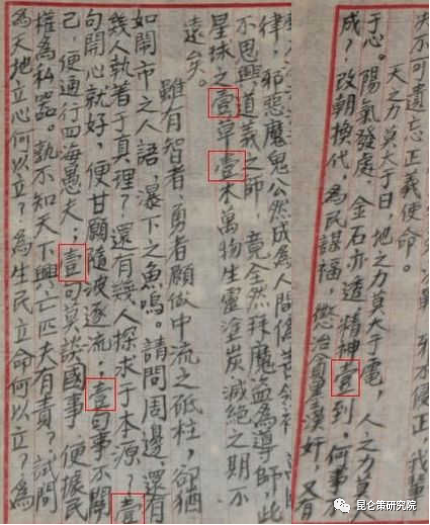 夫不可遺忘正義使命。
天之力莫大于日，地之力莫大于電，人之力莫
于心。陽氣發處，金石亦透，精神壹到，何事
成？改朝換代，為民謀福，懲治貪墨漢奸，又有
律，邪惡魔鬼公然成為人間偽善領袖
不思興道義之師，竟全然拜魔盜為導師，此
星球之壹草壹木萬物生靈塗炭滅絕之期不
遠矣。
雖有智者，勇者願做中流之砥柱，卻猶
如開市之人語，瀑下之魚鳴。請問周邊還有
幾人執着于真理？還有幾人探求于本源？壹
句開心就好，便甘願隨波逐流；壹句事不關
己，便通行四海愚夫；壹句莫談國事，便據民
權為私器。孰不知天下興亡匹夫有責？試問
為天地立心何以立？為生民立命何以立？為
昆仑策研究院